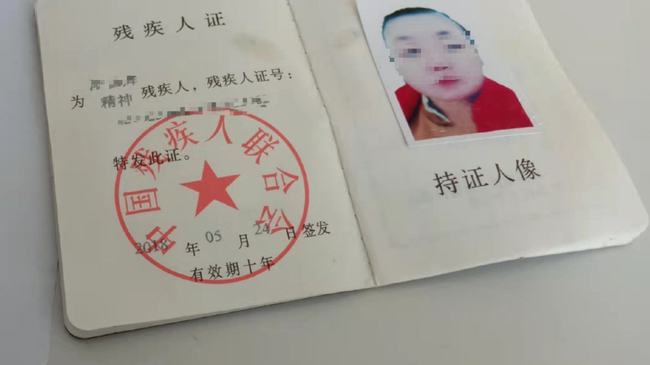 残疾人证
为 精神 残疾人，残疾人证号：
特发此证。
中国残疾人联合会
2018 年 05 月 24 日签发
有效期十年
持证人像